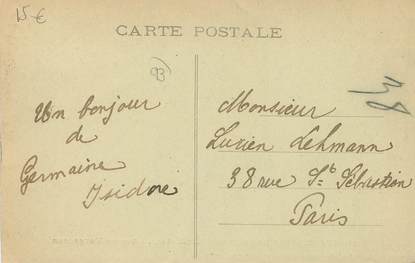 15 €
CARTE POSTALE
93
Un bonjour
de
Germaine
Isidore
Monsieur
Lucien Lehmann
38 rue St Sébastien
Paris